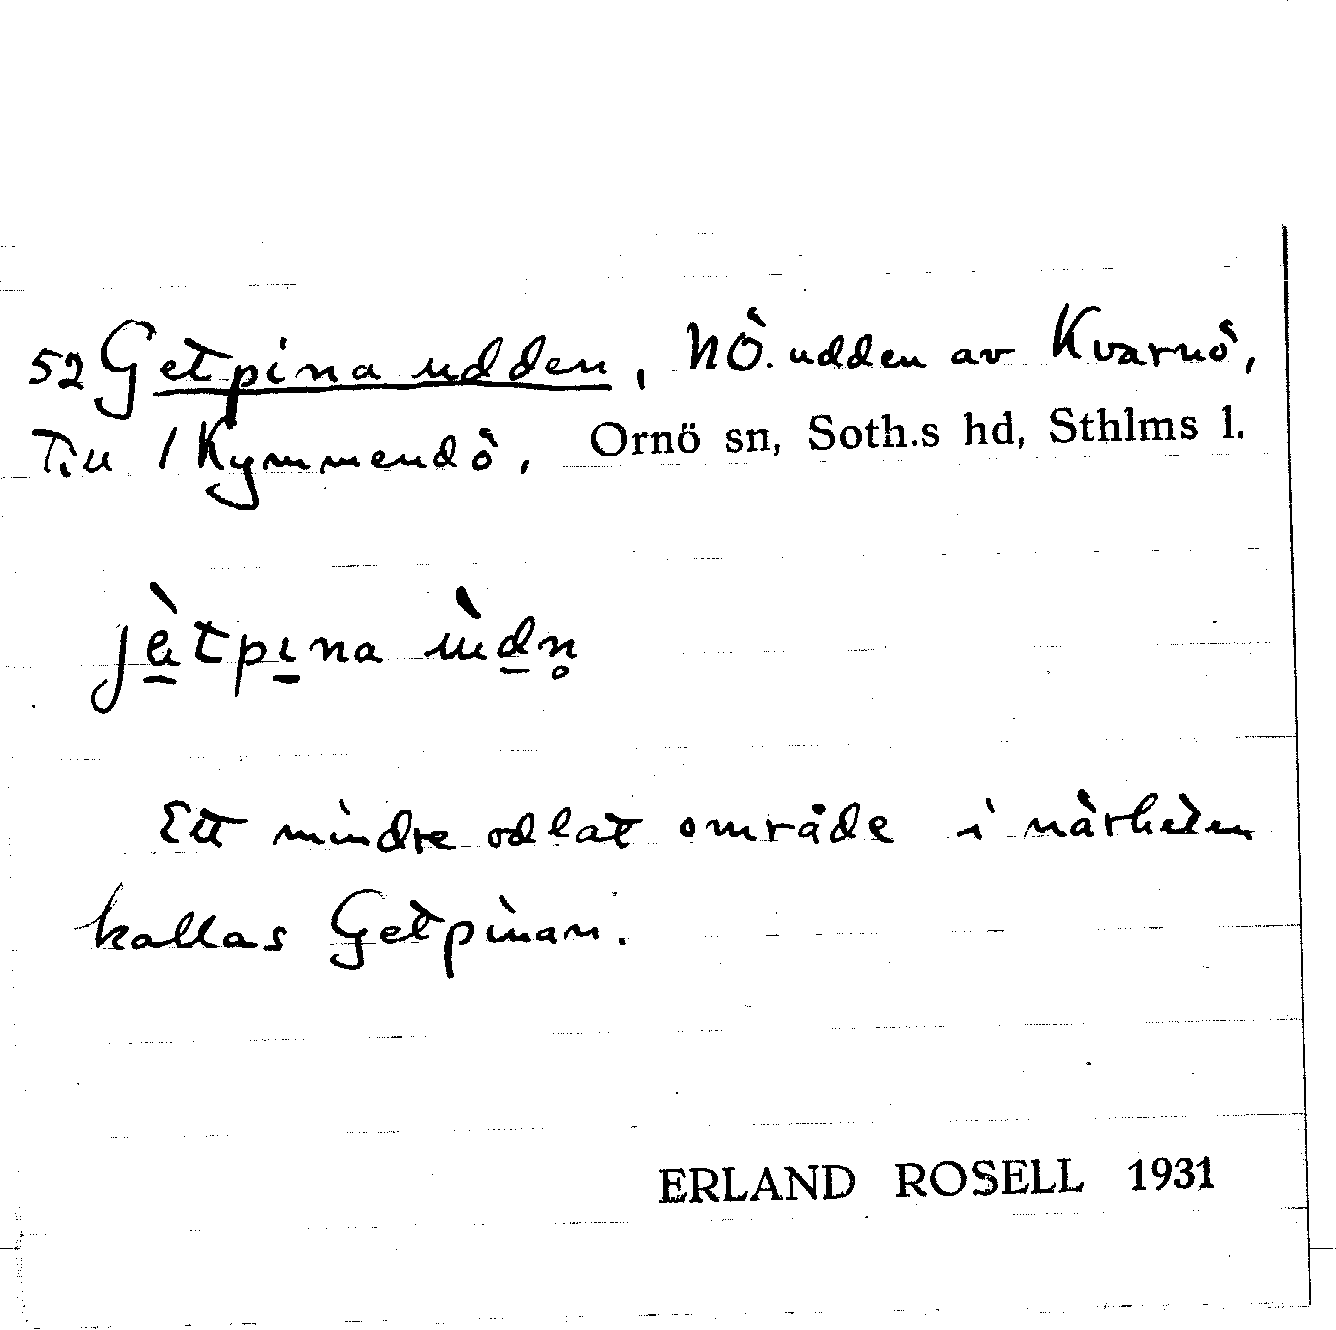 52 Getpina udden, NÖ. udden av Kvarnö,
Till 1 Kymmendö, Ornö sn, Soth.s hd, Sthlms l.
jè̱tpi̱na ùḏn̥
Ett mindre odlat område i närheten
kallas Getpinan.
ERLAND ROSELL 1931